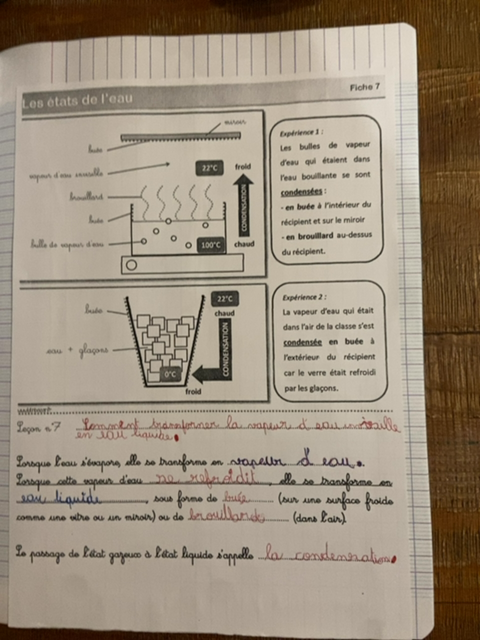 Fiche 7
Les états de l'eau
miroir
buée
vapeur d'eau invisible
22°C
froid
brouillard
buée
CONDENSATION
bulle de vapeur d'eau
100°C
chaud
Expérience 1 :
Les bulles de vapeur
d'eau qui étaient dans
l'eau bouillante se sont
condensées :
- en buée à l'intérieur du
récipient et sur le miroir
- en brouillard au-dessus
du récipient.
22°C
chaud
buée
eau + glaçons
CONDENSATION
0°C
froid
Expérience 2 :
La vapeur d'eau qui était
dans l'air de la classe s'est
condensée en buée à
l'extérieur du récipient
car le verre était refroidi
par les glaçons.
Leçon n°7 Comment transformer la vapeur d'eau
en eau liquide.
Lorsque l'eau s'évapore, elle se transforme en vapeur d'eau.
Lorsque cette vapeur d'eau se refroidit, elle se transforme en
eau liquide, sous forme de buée (sur une surface froide
comme une vitre ou un miroir) ou de brouillard (dans l'air).
Le passage de l'état gazeux à l'état liquide s'appelle la condensation.